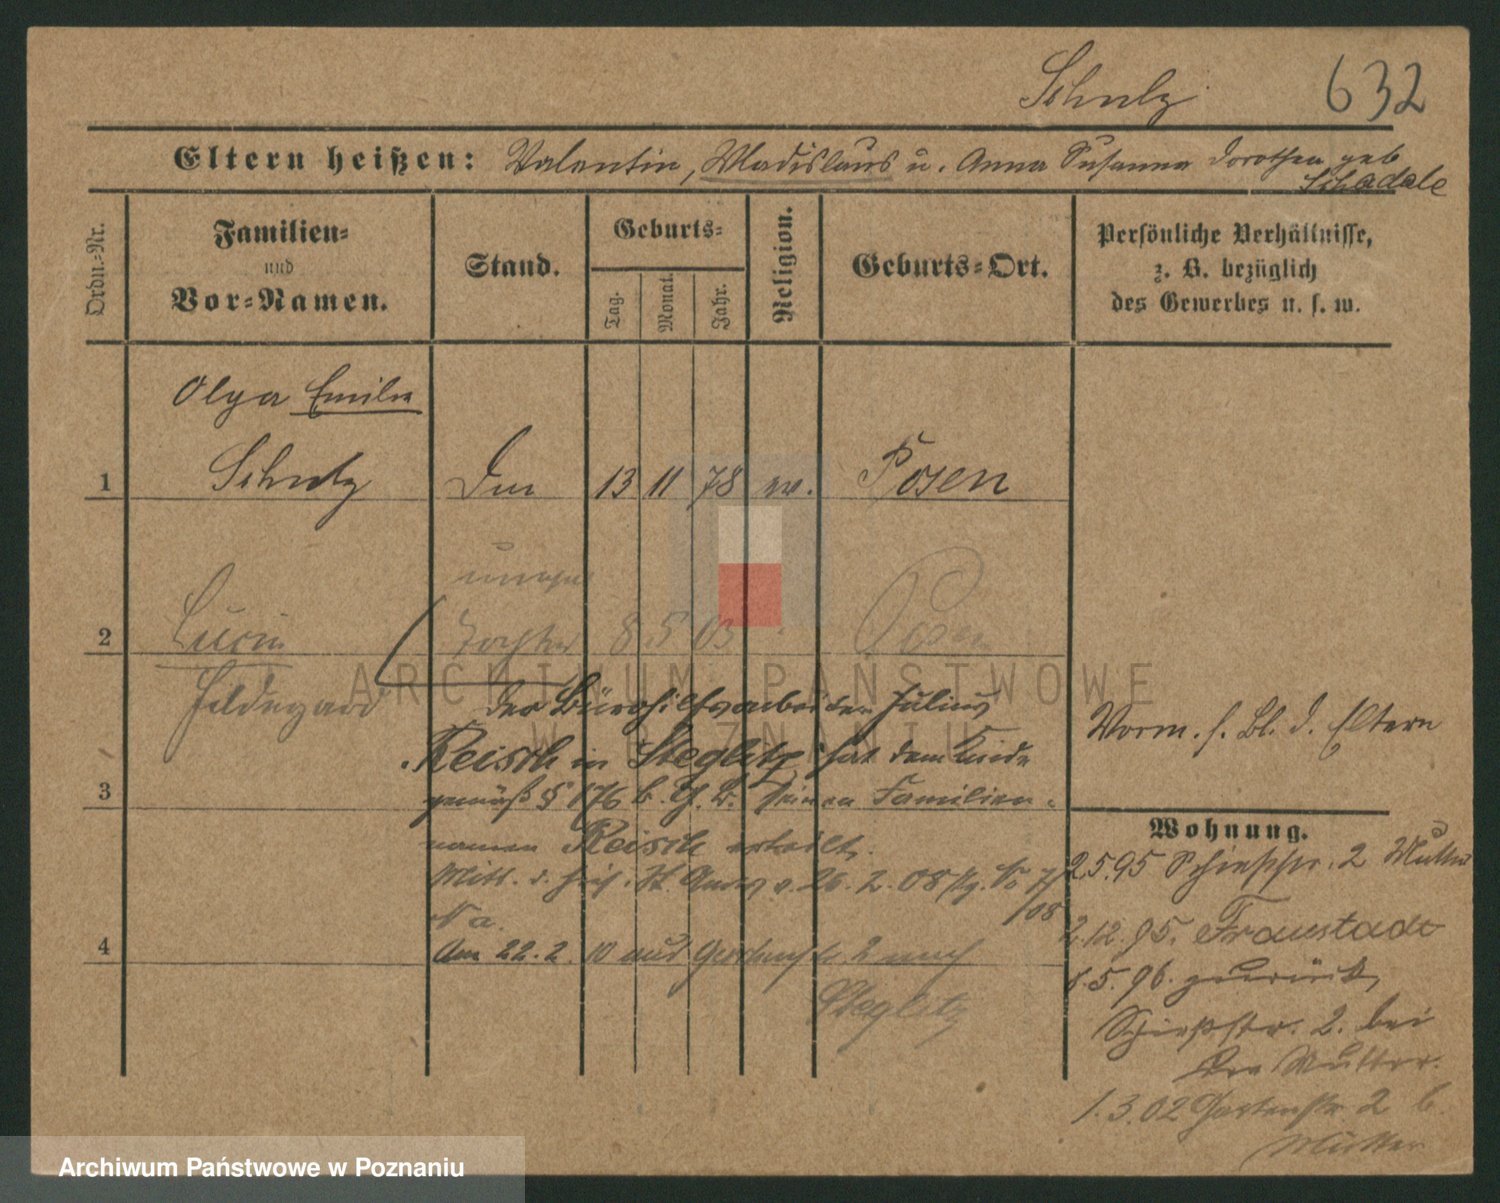 Schulz 632
Eltern heißen: Valentin, Wladislaus u. Anna Susanna Dorothea geb
Schadale
Ordn.-Nr.
Familien-
und
Vor-Namen.
Stand.
Geburts-
Tag.
Monat.
Jahr.
Religion.
Geburts-Ort.
Persönliche Verhältnisse,
z. B. bezüglich
des Gewerbes u. s. w.
Olga Emilie
1 Schulz 13 11 78 ev. Posen
unehel
2 Lucie Tochter 8 5 03 Posen
Hildegard
der Bürohilfsarbeiter Julius
Reisch in Steglitz hat dem Kinde
3 gemäß § 1706 B. G. B. seinen Familien-
namen Reisch erteilt.
Mitt. d. v. 26. 2. 08
/08
4 Am 22. 2. 10 aus 2 nach
Steglitz
Vorm. s. Bl. d. Eltern
Wohnung.
2.5.95 Schießstr. 2 Mutter
2.12.95. Fraustadt
5.96. zurück,
Schießstr. 2. bei
der Mutter.
1.3.02 Gartenstr. 2 b.
Mutter
ARCHIWUM PAŃSTWOWE
W POZNANIU
Archiwum Państwowe w Poznaniu